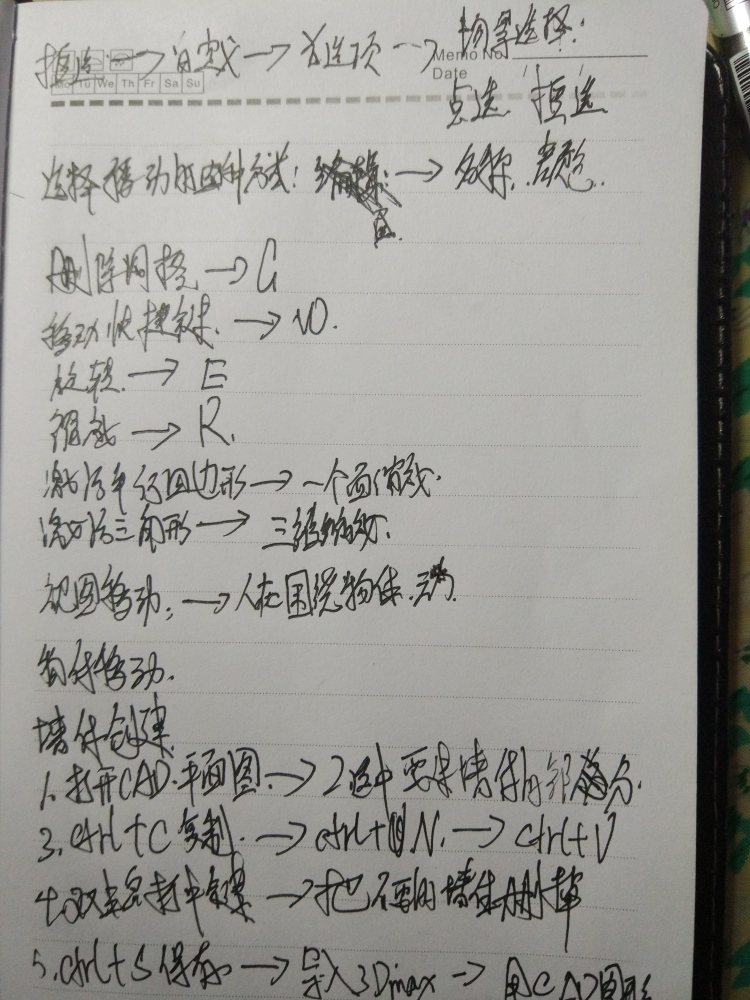 框选 → 自定义 → 首选项 → 物体选择:
Memo No.
Date
Mo Tu We Th Fr Sa Su
点选 框选
选择移动的四种方式: → 名称.
删除网格 → G
移动快捷键. → W.
旋转. → E
缩放 → R.
激活平行四边形 → 一个面缩放.
激活三角形 → 三维缩放.
视图移动: → 人在围绕物体.动.
物体移动.
墙体创建.
1. 打开CAD.平面图. → 2选中要求墙体内部部分.
3. ctrl+C 复制. → ctrl+N. → ctrl+V
4. 双击 → 把不要的墙体删掉
5. ctrl+S 保存. → 导入3Dmax → 用CAD图形